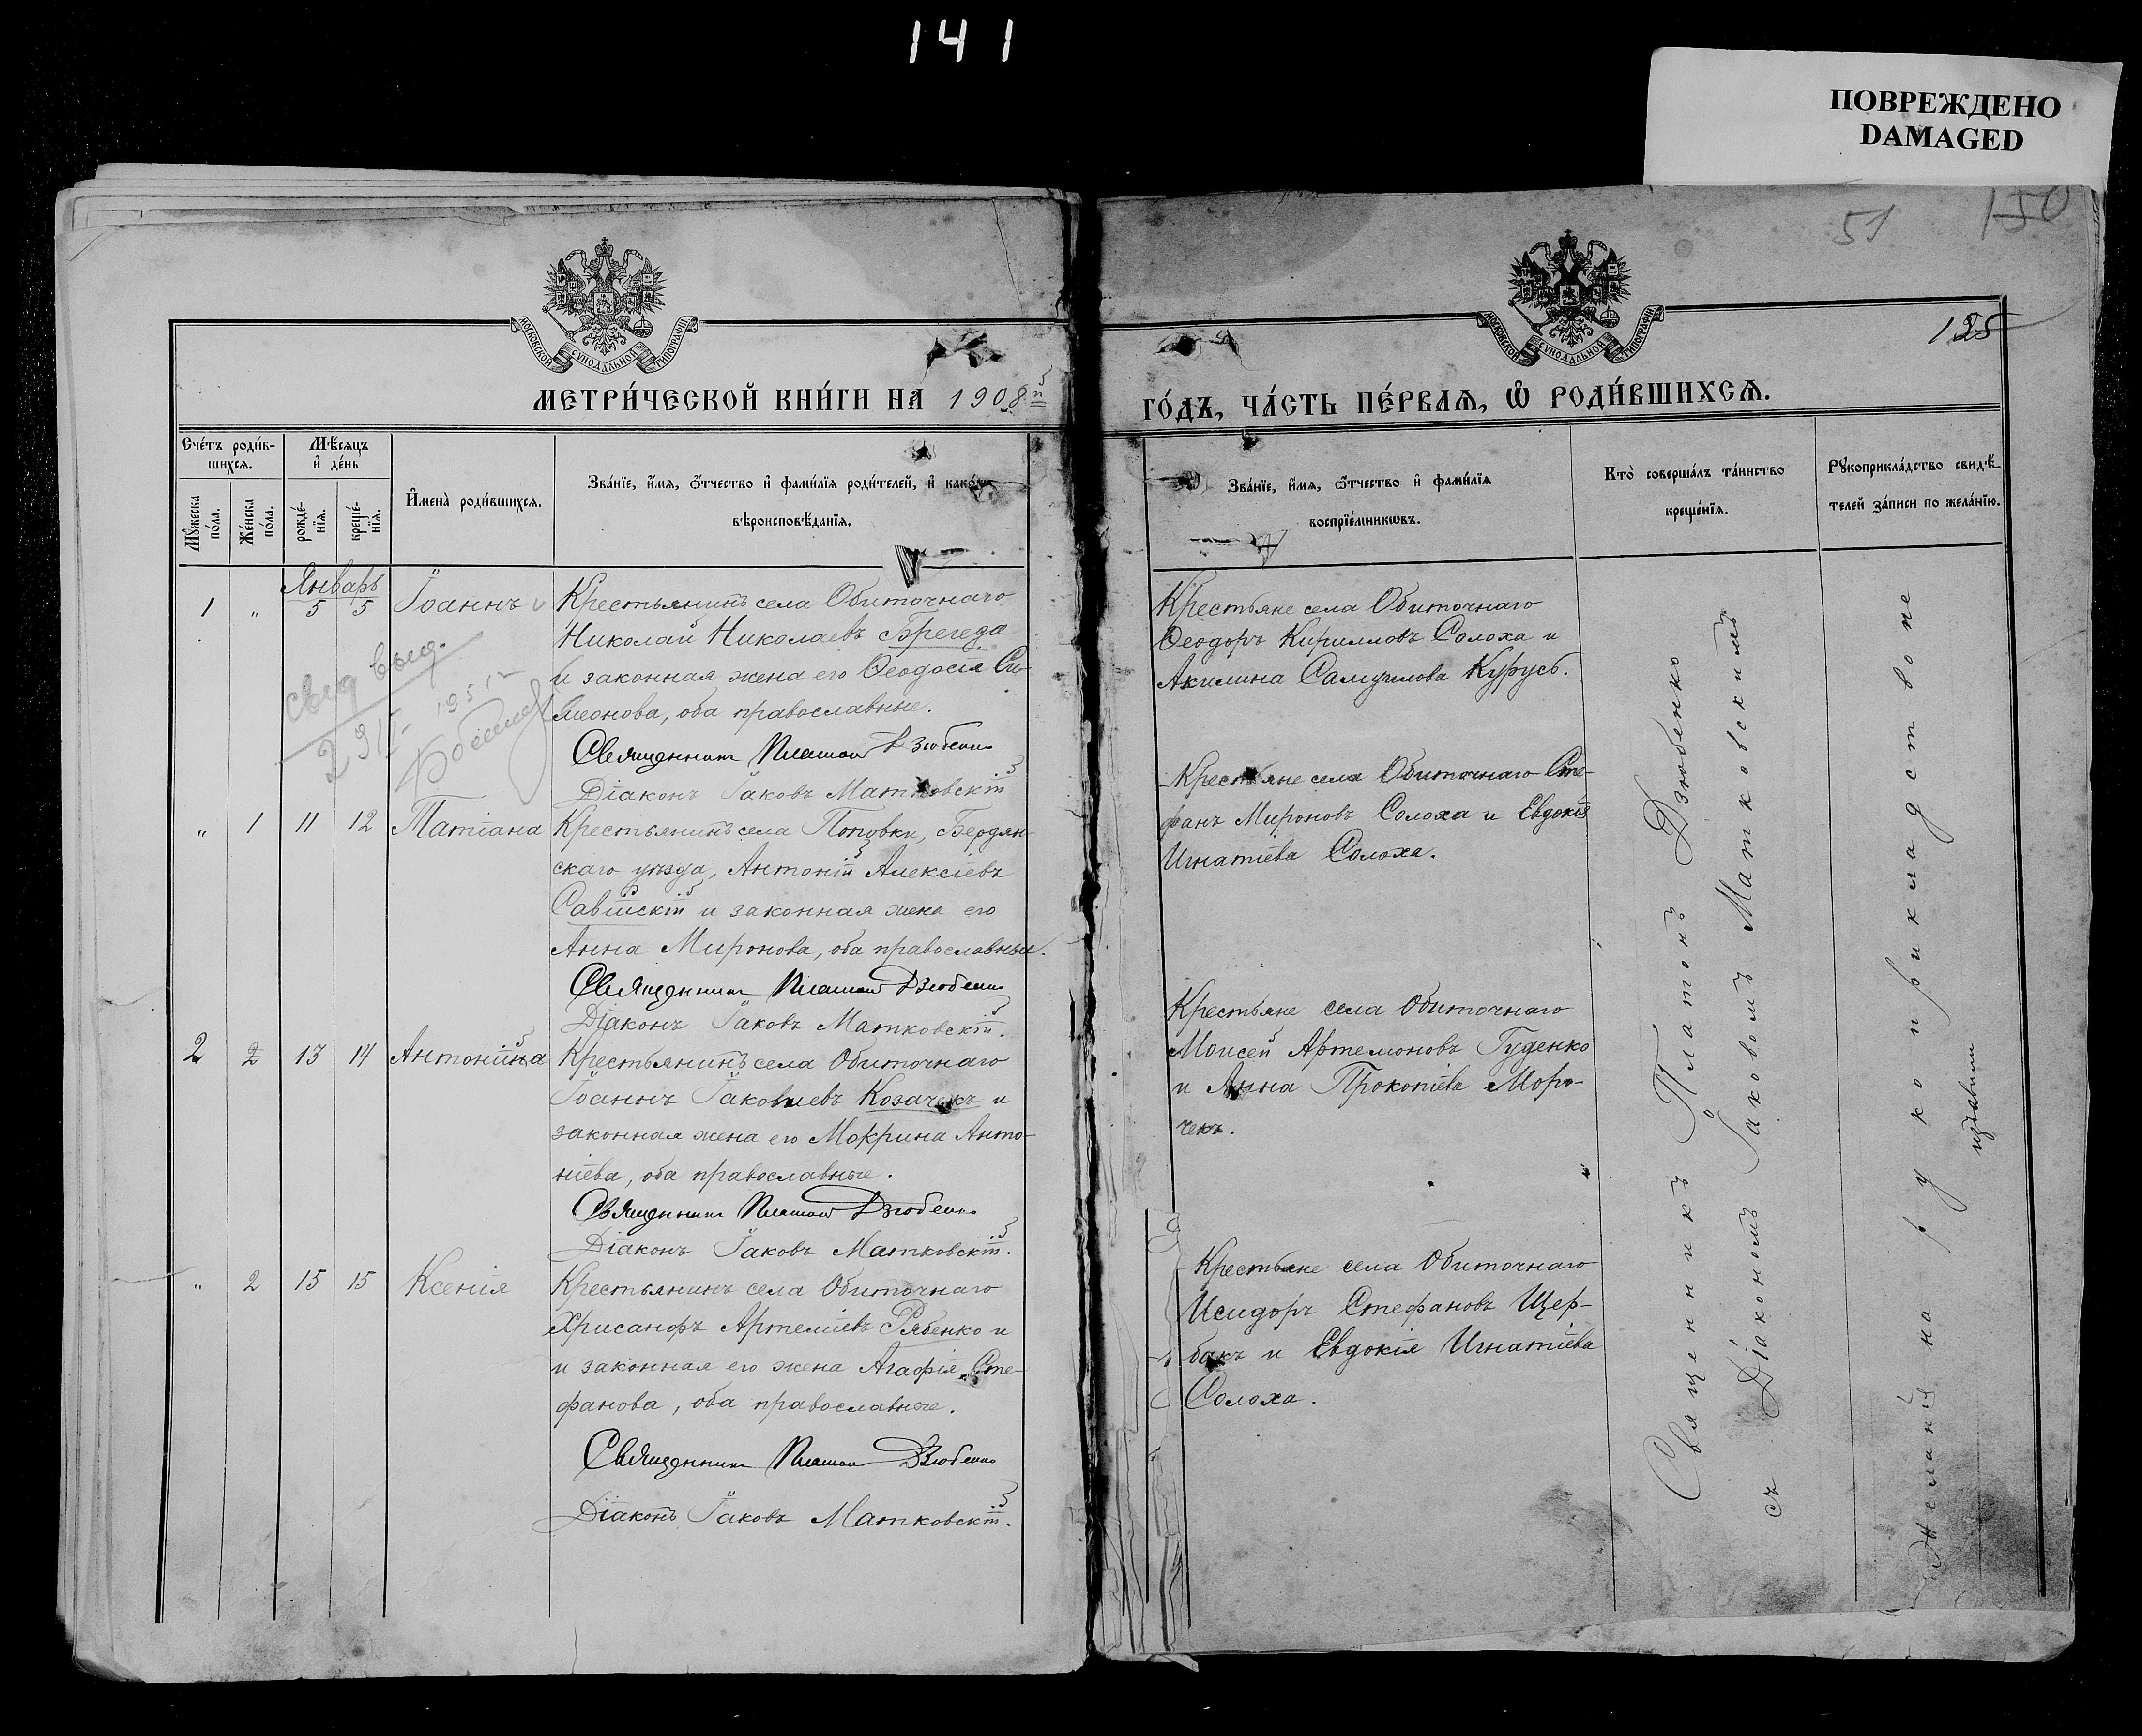 141
ПОВРЕЖДЕНО
DAMAGED
51
150
125
МОСКОВСКОЙ СѴНОДАЛЬНОЙ ТИПОГРАФІИ
МОСКОВСКОЙ СѴНОДАЛЬНОЙ ТИПОГРАФІИ
МЕТРИ́ЧЕСКОЙ КНИ́ГИ НА 1908й
ГО́ДЪ, ЧА́СТЬ ПЕ́РВАѦ, Ѡ҆ РОДИ́ВШИХСѦ.
Сче́тъ роди́в-
шихсѧ.
Мꙋ́жеска по́ла.
Же́нска по́ла.
Мѣ́сѧцъ
и҆ де́нь
рожде́-
нїѧ.
креще́-
нїѧ.
И҆мена̀ роди́вшихсѧ.
Зва́нїе, и҆́мѧ, ѻ҆́тчество и҆ фами́лїѧ роди́телей, и҆ како́гѡ
вѣроисповѣ́данїѧ.
Зва́нїе, и҆́мѧ, ѻ҆́тчество и҆ фами́лїѧ
воспрїе́мникѡвъ.
Кто̀ соверша́лъ та́инство
креще́нїѧ.
Рꙋкоприкла́дство свидѣ́-
телей за́писи по жела́нїю.
Январь
1 " 5 5 Іоаннъ
Крестьянинъ села Обиточнаго
Николай Николаевъ Брегеда
и законная жена его Ѳеодосія Си-
меонова, оба православные.
Священникъ Платонъ Дзюбенко
Діаконъ Іаковъ Матковскій
свид выд.
Крестьяне села Обиточнаго
Ѳеодоръ Кирилловъ Солоха и
Акилина Самуилова Курусь.
" 1 11 12 Татіана
Крестьянинъ села Поповки, Бердян-
скаго уѣзда, Антоній Алексіевъ
Савійскій и законная жена его
Анна Миронова, оба православные.
Священникъ Платонъ Дзюбенко
Діаконъ Іаковъ Матковскій.
Крестьяне села Обиточнаго Сте-
фанъ Мироновъ Солоха и Евдокія
Игнатіева Солоха.
2 2 13 14
Крестьянинъ села Обиточнаго
Іоаннъ Іаковлевъ Козачекъ и
законная жена его Мокрина Анто-
ніева, оба православные.
Священникъ Платонъ Дзюбенко
Діаконъ Іаковъ Матковскій.
Крестьяне села Обиточнаго
Моисей Артемоновъ Гуденко
и Анна Прокопіева Моро-
чекъ.
" 2 15 15 Ксенія
Крестьянинъ села Обиточнаго
Хрисанфъ Артеміевъ Рябенко и
и законная его жена Агафія Сте-
фанова, оба православные.
Священникъ Платонъ Дзюбенко
Діаконъ Іаковъ Матковскій.
Крестьяне села Обиточнаго
Исидоръ Стефановъ Щер-
бакъ и Евдокія Игнатіева
Солоха.
Священникъ Платонъ Дзюбенко
съ Діакономъ Іаковомъ Матковскимъ
Желаній на рукоприкладство не
изъявили